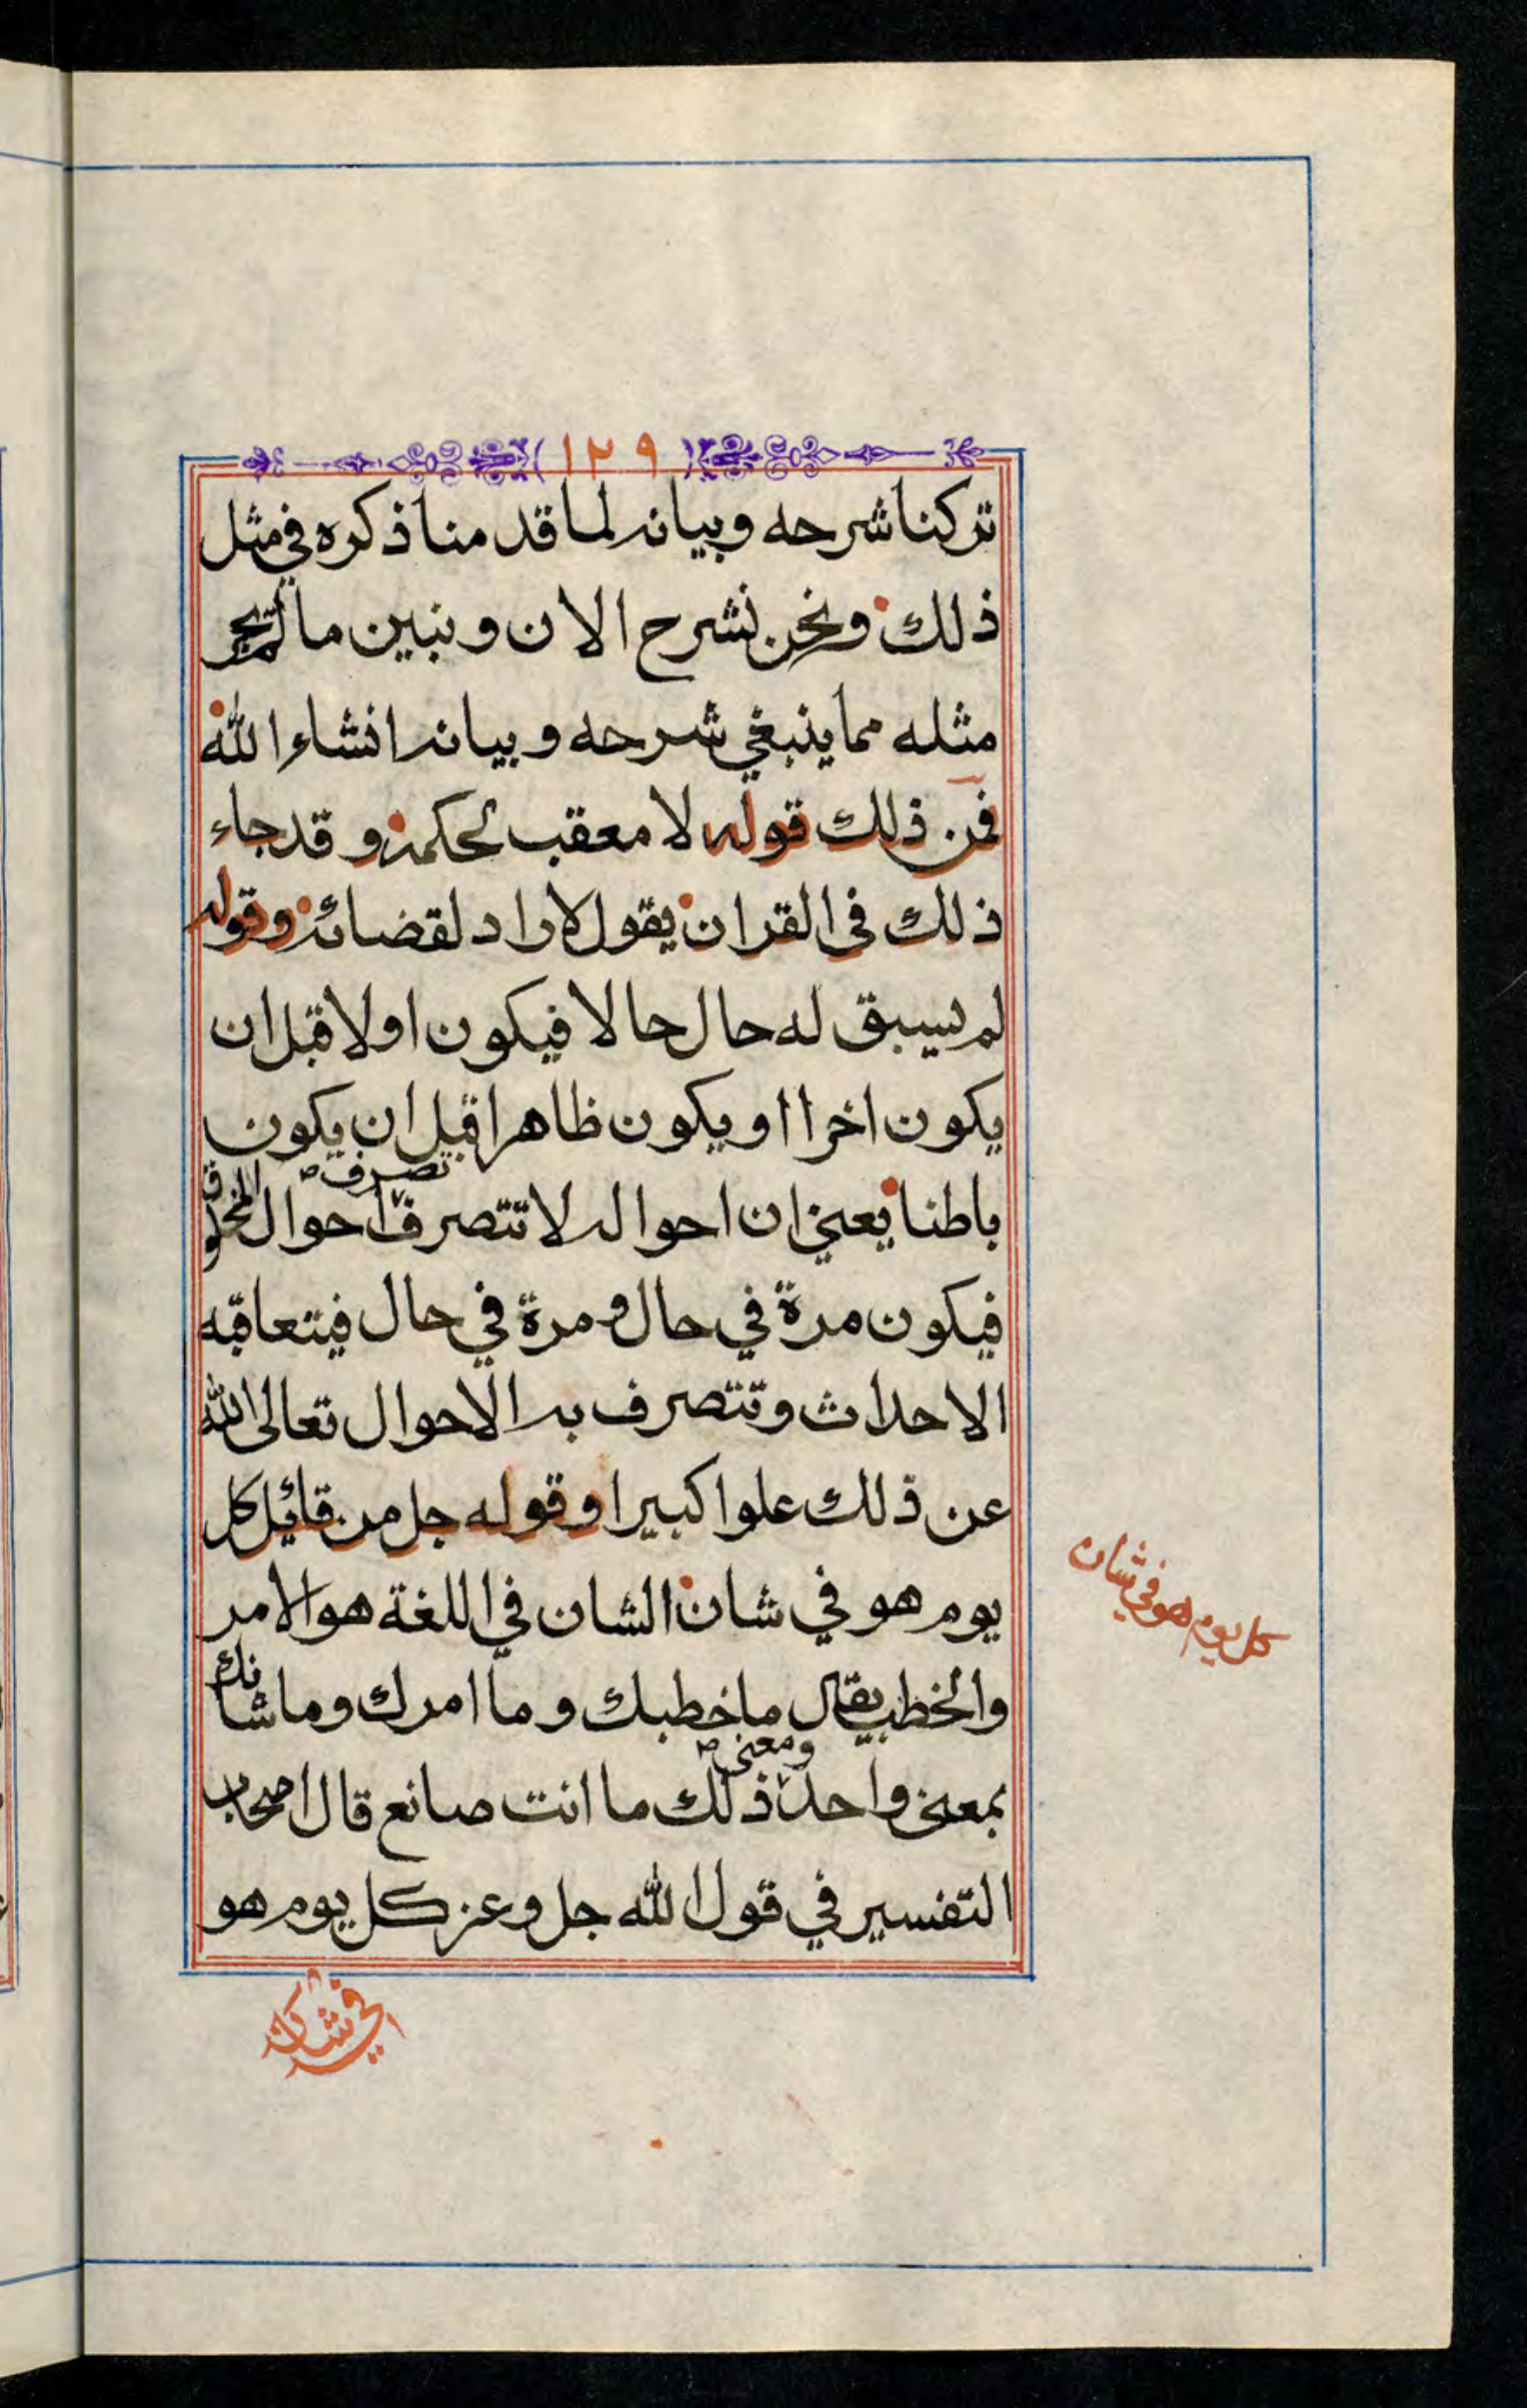 ١٢٩
تركنا شرحه وبيانه لما قدمنا ذكره في مثل
ذلك ونحن نشرح الان ونبين ما لم يجر
مثله مما ينبغي شرحه وبيانه انشاء الله
فمن ذلك قوله لا معقب لحكمه وقد جاء
ذلك في القران يقول لا راد لقضائه وقوله
لم يسبق له حال حالا فيكون اولا قبل ان
يكون اخرا او يكون ظاهرا قبل ان يكون
تصرف
باطنا يعني ان احواله لا تتصرف احوال المخلوق
فيكون مرة في حال ومرة في حال فيتعاقبه
الاحداث وتتصرف به الاحوال تعالى الله
عن ذلك علوا كبيرا وقوله جل من قائل كل
يوم هو في شان الشان في اللغة هو الامر
كل يوم هو في شان
والخطب يقال ما خطبك وما امرك وما شانك
ومعنى
بمعنى واحد ذلك ما انت صانع قال اصحاب
التفسير في قول الله جل وعز كل يوم هو
في شان